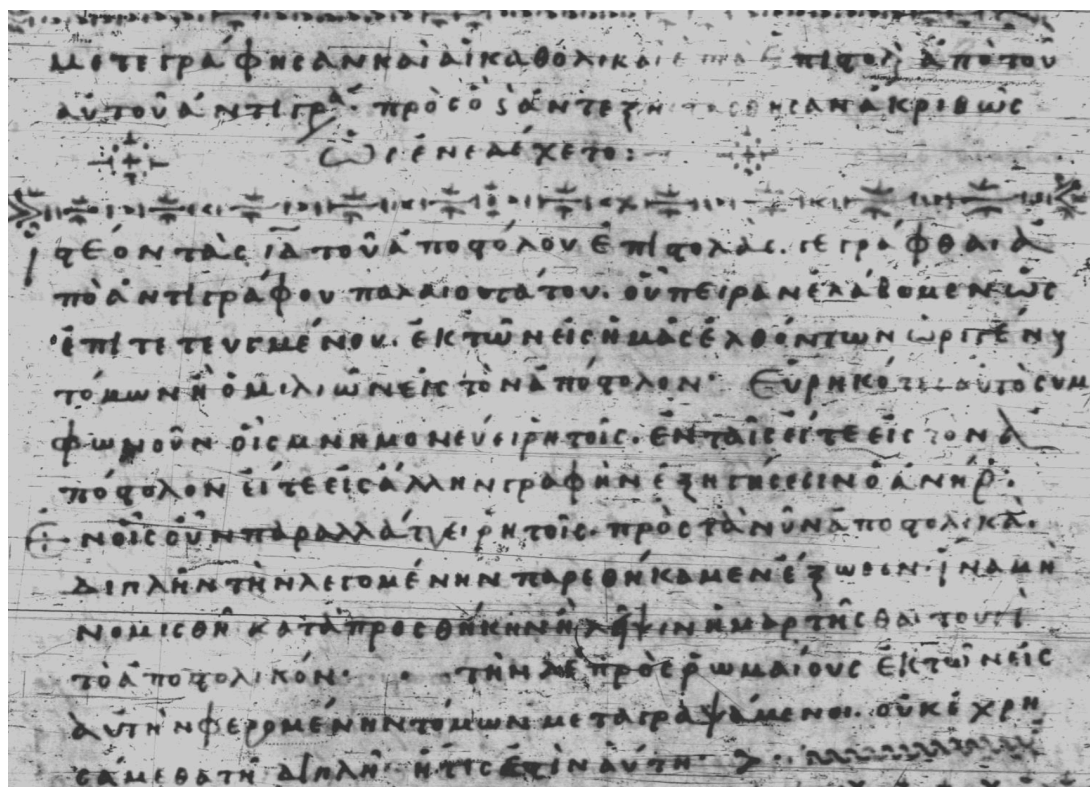 μετεγράφησαν καὶ αἱ καθολικαὶ ἐπιστολ ἀπὸ τοῦ
αὐτοῦ ἀντιγρά· πρὸς ὃ ἀντεξητάσθησαν ἀκριβῶς
ὡς ἐνεδέχετο:
ἰστέον τὰς ιδ τοῦ ἀποστόλου ἐπιστολάς. γεγράφθαι ἀ
πὸ ἀντιγράφου παλαιοτάτου. οὗ πεῖραν ἐλάβομεν ὡς
ἐπιτετευγμένου. ἐκ τῶν εἰς ἡμᾶς ἐλθόντων ὠριγένου
τόμων ἢ ὁμιλιῶν εἰς τὸν ἀπόστολον· εὑρηκότες αὐτὸ συμ
φωνοῦν οἷς μνημονεύει ῥητοῖς. ἐν ταῖς εἴτε εἰς τὸν ἀ
πόστολον εἴτε εἰς ἄλλην γραφὴν ἐξηγήσεσιν ὁ ἀνήρ·
ἐν οἷς οὖν παραλλάττει ῥητοῖς. πρὸς τὰ νῦν ἀποστολικά.
διπλῆν τὴν λεγομένην παρεθήκαμεν ἔξωθεν. ἵνα μὴ
νομισθῆ κατὰ προσθήκην ἢ λῆψιν ἡμαρτῆσθαι τουτὶ
τὸ ἀποστολικόν· τὴν δὲ πρὸς ῥωμαίους ἐκ τῶν εἰς
αὐτὴν φερομένην τόμων μεταγραψάμενοι. οὐκ ἐχρη
σάμεθα τῆ διπλῆ· ἥτις ἐστὶν αὕτη· >